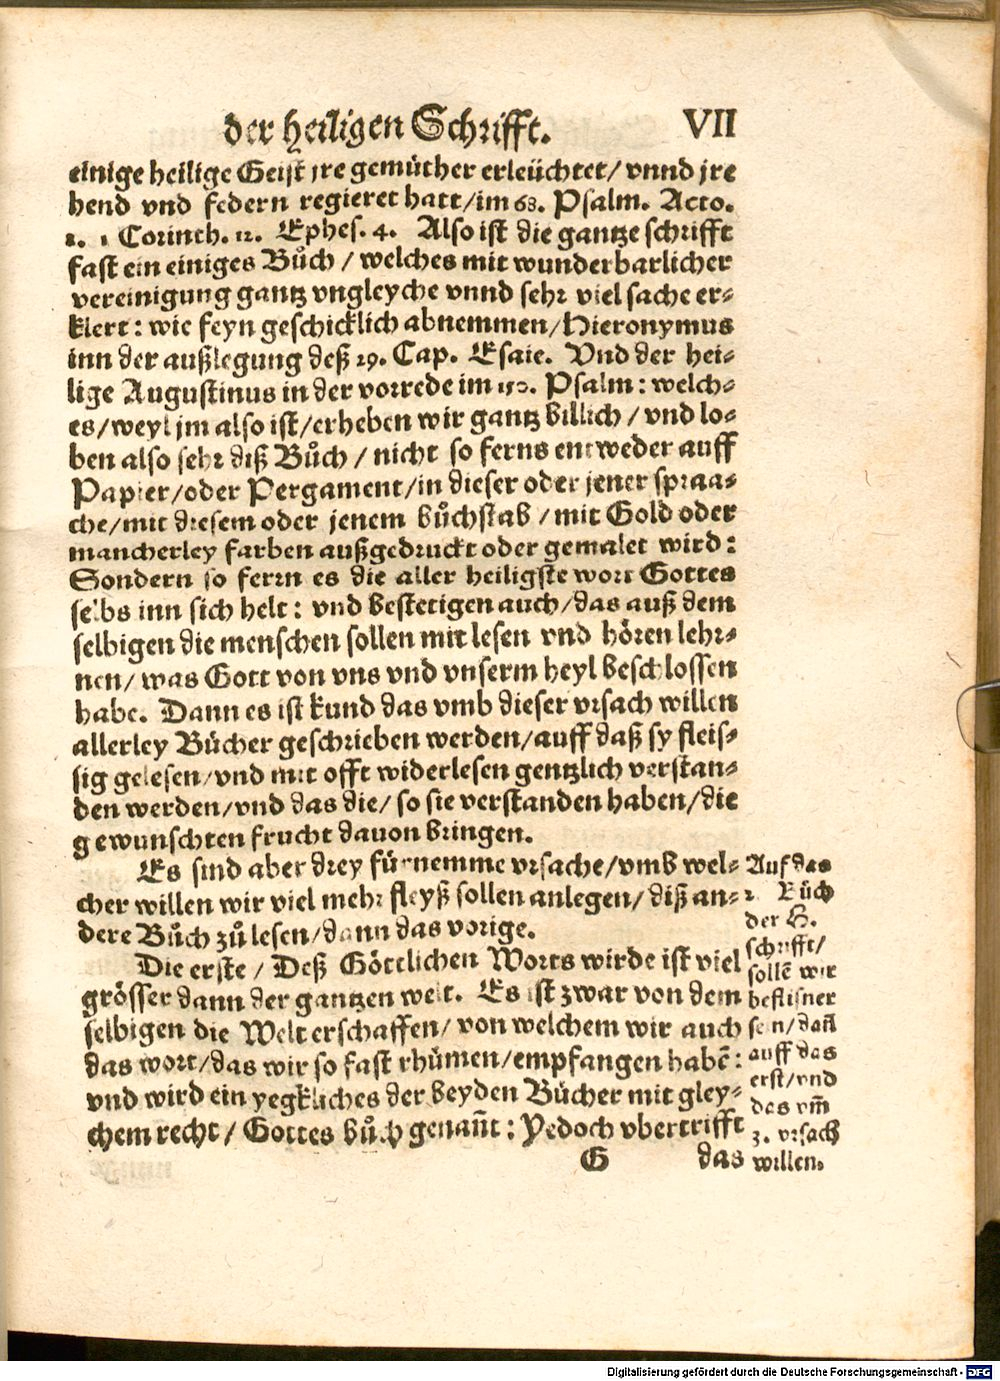 der heiligen Schrifft. VII
einige heilige Geist jre gemüther erleüchtet/ vnnd jre
hend vnd federn regieret hatt/im 68. Psalm. Acto.
1 Corinth. 12. Ephes. 4. Also ist die gantze schrifft
fast ein einiges Bůch / welches mit wunderbarlicher
vereinigung gantz vngleyche vnnd sehr viel sache er-
klert: wie feyn geschicklich abnemmen/Hieronymus
inn der außlegung deß 29. Cap. Esaie. Vnd der hei-
lige Augustinus in der vorrede im 150. Psalm: welch-
es/weyl jm also ist/erheben wir gantz billich / vnd lo-
ben also sehr diß Bůch / nicht so ferns entweder auff
Papier/oder Pergament/in dieser oder jener spraa-
che/mit diesem oder jenem bůchstab /mit Gold oder
mancherley farben außgedruckt oder gemalet wird:
Sondern so ferrn es die aller heiligste wort Gottes
selbs inn sich helt: vnd bestetigen auch/das auß dem
selbigen die menschen sollen mit lesen vnd hören lehr-
nen/ was Gott von vns vnd vnserm heyl beschlossen
habe. Dann es ist kund das vmb dieser vrsach willen
allerley Bücher geschrieben werden/auff daß sy fleis-
sig gelesen/vnd mit offt widerlesen gentzlich verstan-
den werden/vnd das die/ so sie verstanden haben/die
gewunschten frucht dauon bringen.
Es sind aber drey fürnemme vrsache/vmb wel-
cher willen wir viel mehr fleyß sollen anlegen/ diß an-
dere Bůch zů lesen/dann das vorige.
Die erste / Deß Göttlichen Worts wirde ist viel
grösser dann der gantzen welt. Es ist zwar von dem
selbigen die Welt erschaffen/ von welchem wir auch
das wort/das wir so fast rhümen/empfangen habē:
vnd wird ein yegkliches der beyden Bücher mit gley-
chem recht/ Gottes bůch genañt: Yedoch vbertrifft
G das
Auf das
2. Bůch
der H.
schrifft/
sollē wir
beflisner
sein/dañ
auff das
erst/vnd
das vm̃
3. vrsach
willen.
Digitalisierung gefördert durch die Deutsche Forschungsgemeinschaft - DFG